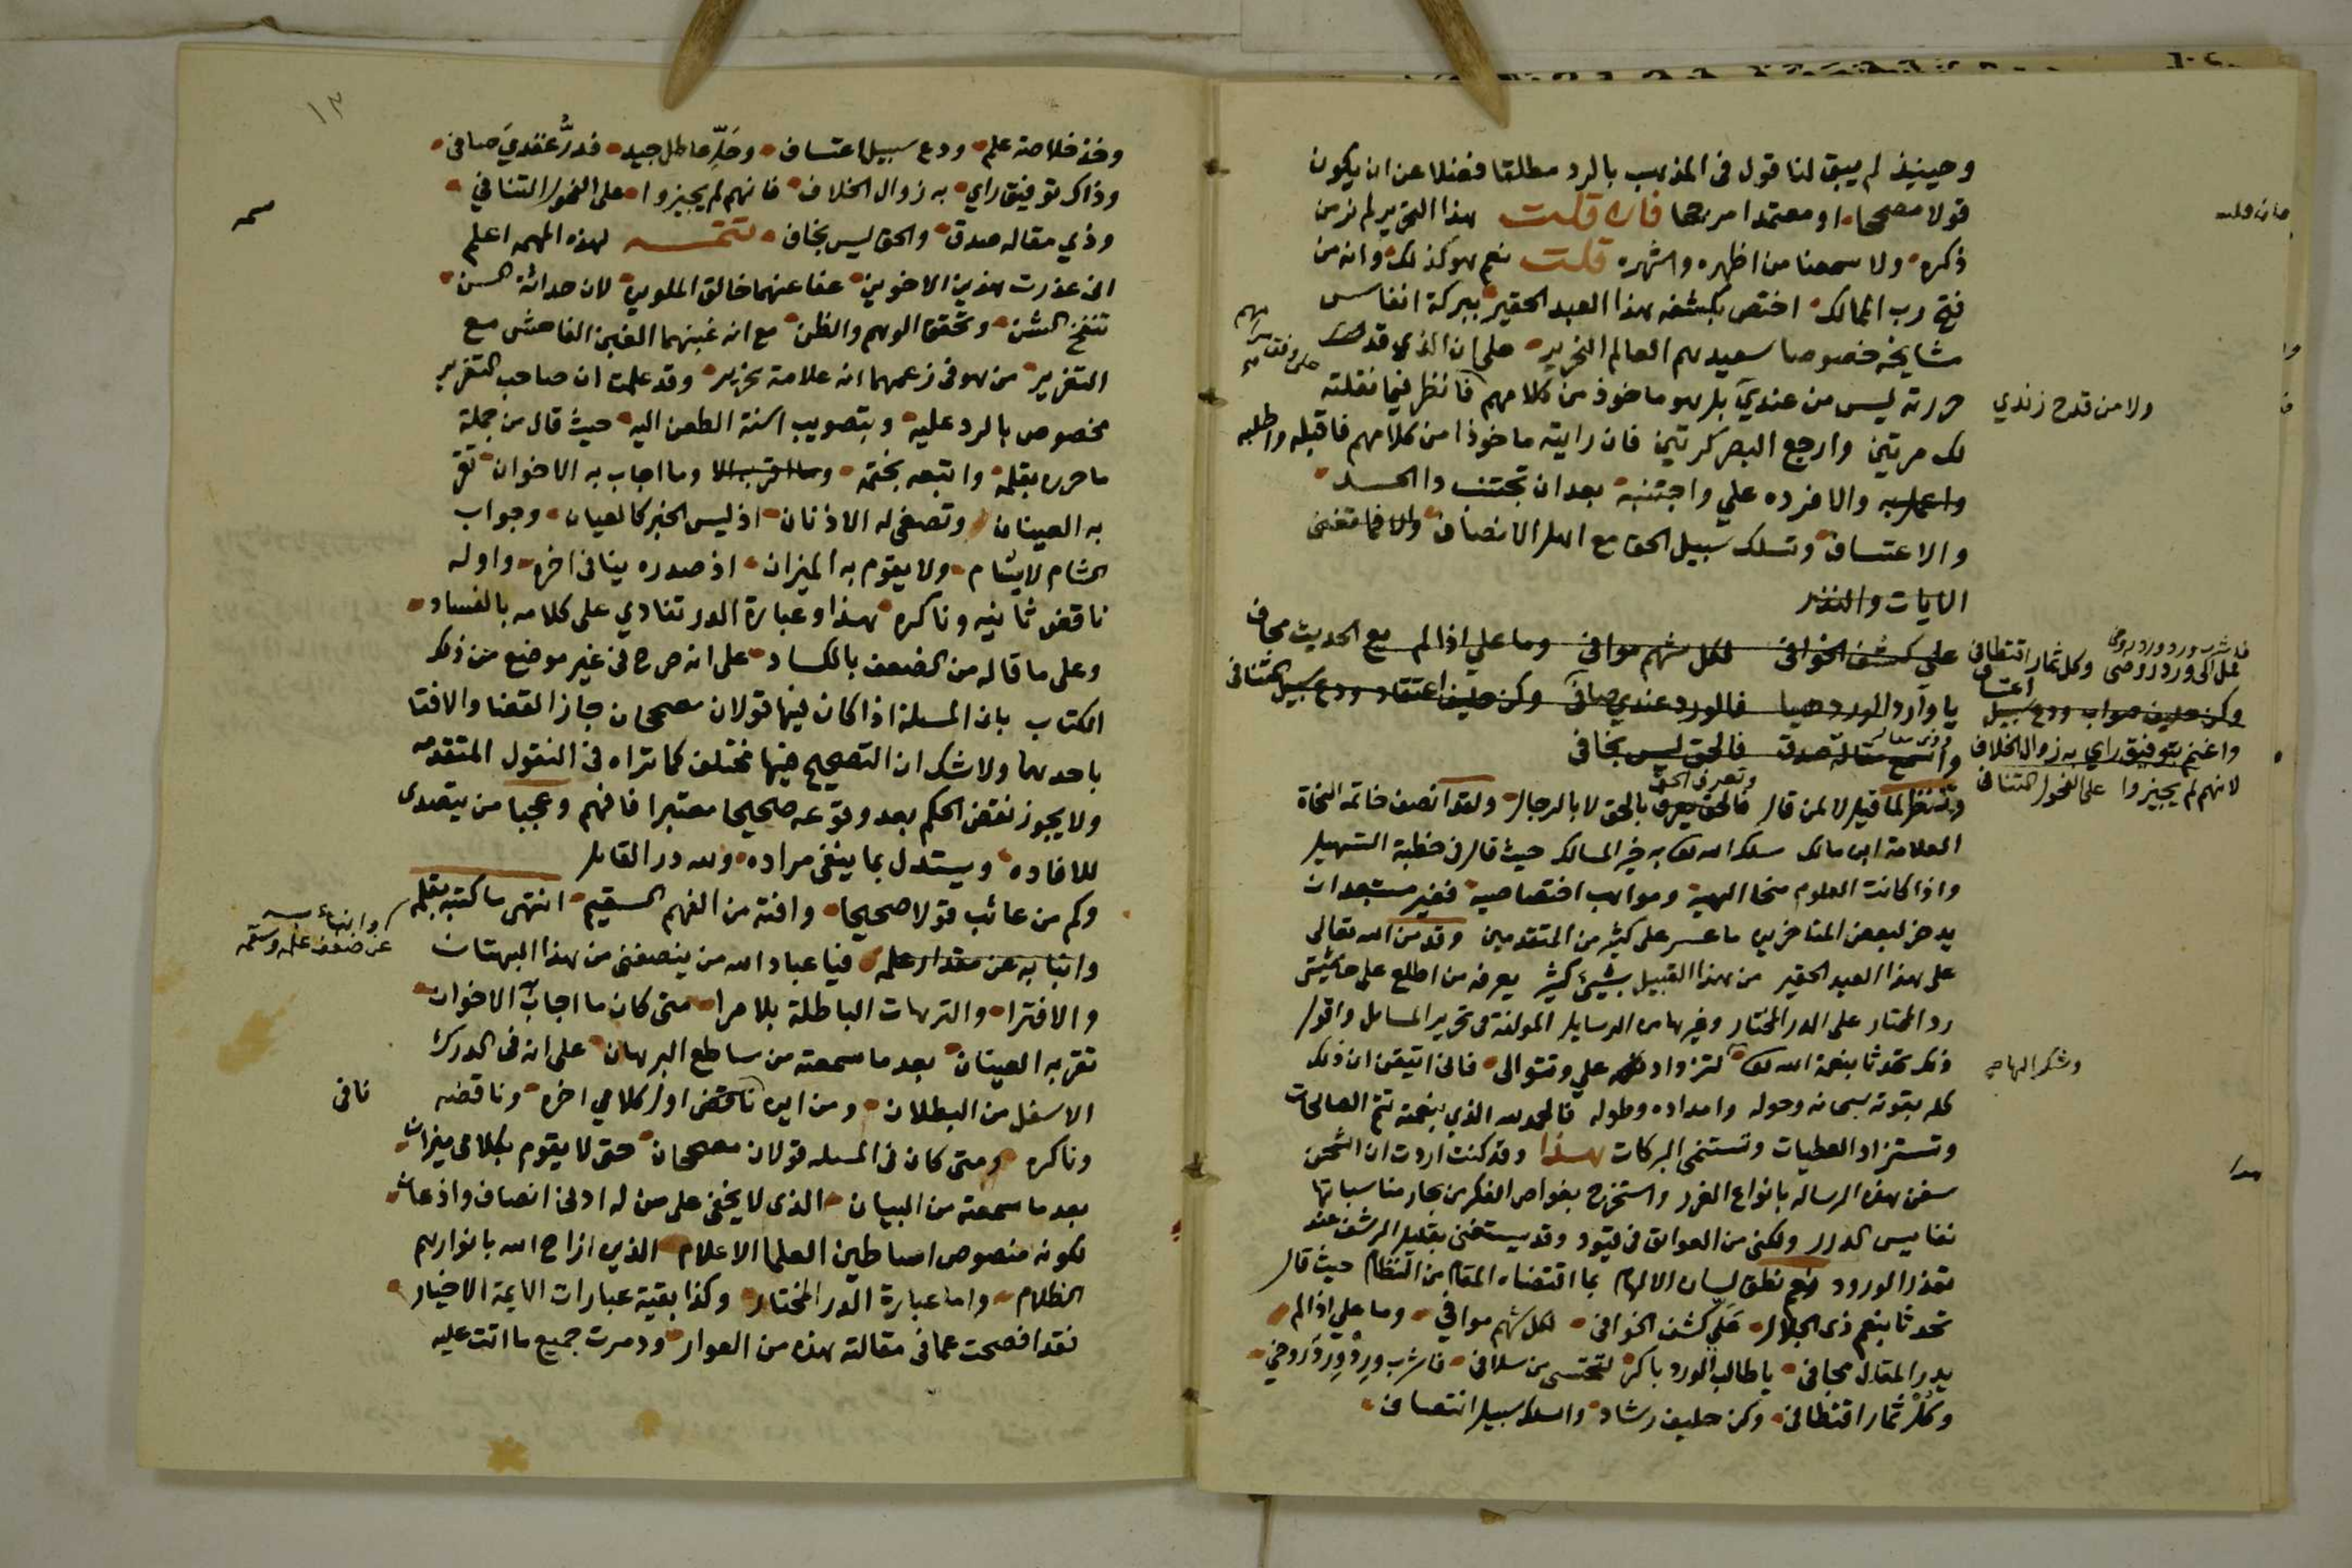 وحينيذ لم يبق لنا قول فى المذهب بالرد مطلقا فضلا عن ان يكون
قولا مصححا او معتمدا مرجحا فان قلت هذا التحرير لم نر من
ذكره ولا سمعنا من اظهره واشهره قلت نعم هو كذلك وانه من
فتح رب الممالك اختص بكشفه هذا العبد الحقير ببركة انفاس
مشايخه خصوصا سعيدهم العالم النحرير على ان الذى قد
حررته ليس من عندي بل هو ماخوذ من كلامهم فانظر فيما نقلته
ولا من قدح زندي
لك مرتين وارجع البصر كرتين فان رايته ماخوذا من كلامهم فاقبله واطلبه
واعمل به والا فرده علي واجتنبه بعد ان تجتنب داالحسد
والاعتساف وتسلك سبيل الحق مع اهل الانصاف والا فما تغنى
الايات والنذر
علي كشف الخوافى لكل شهم موافى وما علي اذا لم مع الحديث مجافى
يا وارد الورد هيا فالورد عندي صافى وكن حليف اعتقاد ودع سبيل التنافى
واسمع مقالة صدق فالحق ليس بخافى
وكل ثمار اقتطافى
وكن حليف صواب ودع سبيل اعتساف
واغنم بتوفيق راي به زوال الخلاف
لانهم لم يجيزوا على الفحول التنافى
وتنظر لما قيل لا لمن قال فالحق يعرف بالحق لا بالرجال ولقد انصف خاتمة النحاة
وتعرف الحق
العلامة ابن مالك سلك الله تعالى به خير المسالك حيث قال فى خطبة التسهيل
واذا كانت العلوم منحا الهية ومواهب اختصاصية فغير مستبعد ان
يدخر لبعض المتاخرين ما عسر على كثير من المتقدمين وقد من الله تعالى
على هذا العبد الحقير من هذا القبيل بشيئ كثير يعرفه من اطلع على حاشيتى
رد المحتار على الدر المختار وغيرها من الرسايل المولفة فى تحرير المسايل واقول
ذلك تحدثا بنعمة الله تعالى لتزداد علي وتتوالى فانى اتيقن ان ذلك
وشكرا لها
كله بقوته سبحانه وحوله وامداده وطوله فالحمد لله الذي بنعمته تتم الصالحات
وتستزاد العطيات وتستنمى البركات هذا وقد كنت اردت ان اشحن
سفن هذه الرساله بانواع الغرر واستخرج بغواص الفكر من بحار مناسباتها
نفايس الدرر ولكنى من العوائق فى قيود وقد يستغنى بقليل الرشف عند
تعذر الورود نعم نطق لسان الالهام بما اقتضاه المقام من النظام حيث قال
تحدثا بنعم ذى الجلال علي كشف الخوافى لكل شهم موافي وما علي اذا لم
يدر المقال مجافى يا طالب الورد باكر لتحتسى من سلافى فاشرب وِرْد وَرد روضي
وكل ثمار اقتطافى وكن حليف رشاد واسلك سبيل انتصاف
١٣
وخذ خلاصة علم ودع سبيل اعتساف وحَلِّ عاطل جيد فدرُّ عقدي صافى
وذاك توفيق راي به زوال الخلاف فانهم لم يجيزوا على الفحول التنافي
وذي مقاله صدق والحق ليس بخاف تتمـــه لهذه المهمه اعلم
انى عذرت هذين الاخوين عفا عنهما خالق الملوين لان حداثة السن
تنفخ الشن وتحقق الوهم والظن مع انه غبنهما الغبن الفاحش مع
التغرير من هو فى زعمهما انه علامة نحرير وقد علمت ان صاحب التغرير
مخصوص بالرد عليه وبتصويب اسنة الطعن اليه حيث قال من جملة
ما حرره بقلمه واتبعه بختمه وما اجاب به الاخوان تقر
به العينان وتصغى له الاذنان اذ ليس الخبر كالعيان وجواب
الشام لا يشام ولا يقوم به الميزان اذ صدره ينافى اخره واوله
ناقض ثانيه وناكره هذا وعبارة الدر تنادي على كلامه بالفساد
وعلى ما قاله من الضعف بالكساد على انه صرح فى غير موضع من ذلك
الكتاب بان المسلة اذا كان فيها قولان مصححان جاز القضا والافتا
باحدهما ولا شك ان التصحيح فيها مختلف كما تراه فى النقول المتقدمه
ولا يجوز نقض الحكم بعد وقوعه صحيحا معتبرا فافهم وعجبا من يتصدى
للافاده ويستدل بما ينفى مراده ولله در القايل
وكم من عائب قولا صحيحا وافته من الفهم السقيم انتهى ما كتبه بقلمه
وانبا به عن مقدار علمه فيا عباد الله من ينصفنى من هذا البهتان
عن ضعف علمه وسقمه
والافترا والترهات الباطلة بلا مرا متى كان ما اجاب الاخوان
تقر به العينان بعد ما سمعته من ساطع البرهان على انه فى الدرك
الاسفل من البطلان ومن اين ناقض اول كلامي اخره وناقضه
نافى
وناكره ومتى كان فى المسله قولان مصححان حتى لا يقوم بكلامى ميزان
بعد ما سمعته من البيان الذى لا يخفى على من له ادنى انصاف واذعان
لكونه منصوص اساطين العلما الاعلام الذين ازاح الله بانوارهم
الظلام واما عبارة الدر المختار وكذا بقية عبارات الايمة الاخيار
فقد افصحت عما فى مقالته هذه من العوار ودمرت جميع ما اتت عليه